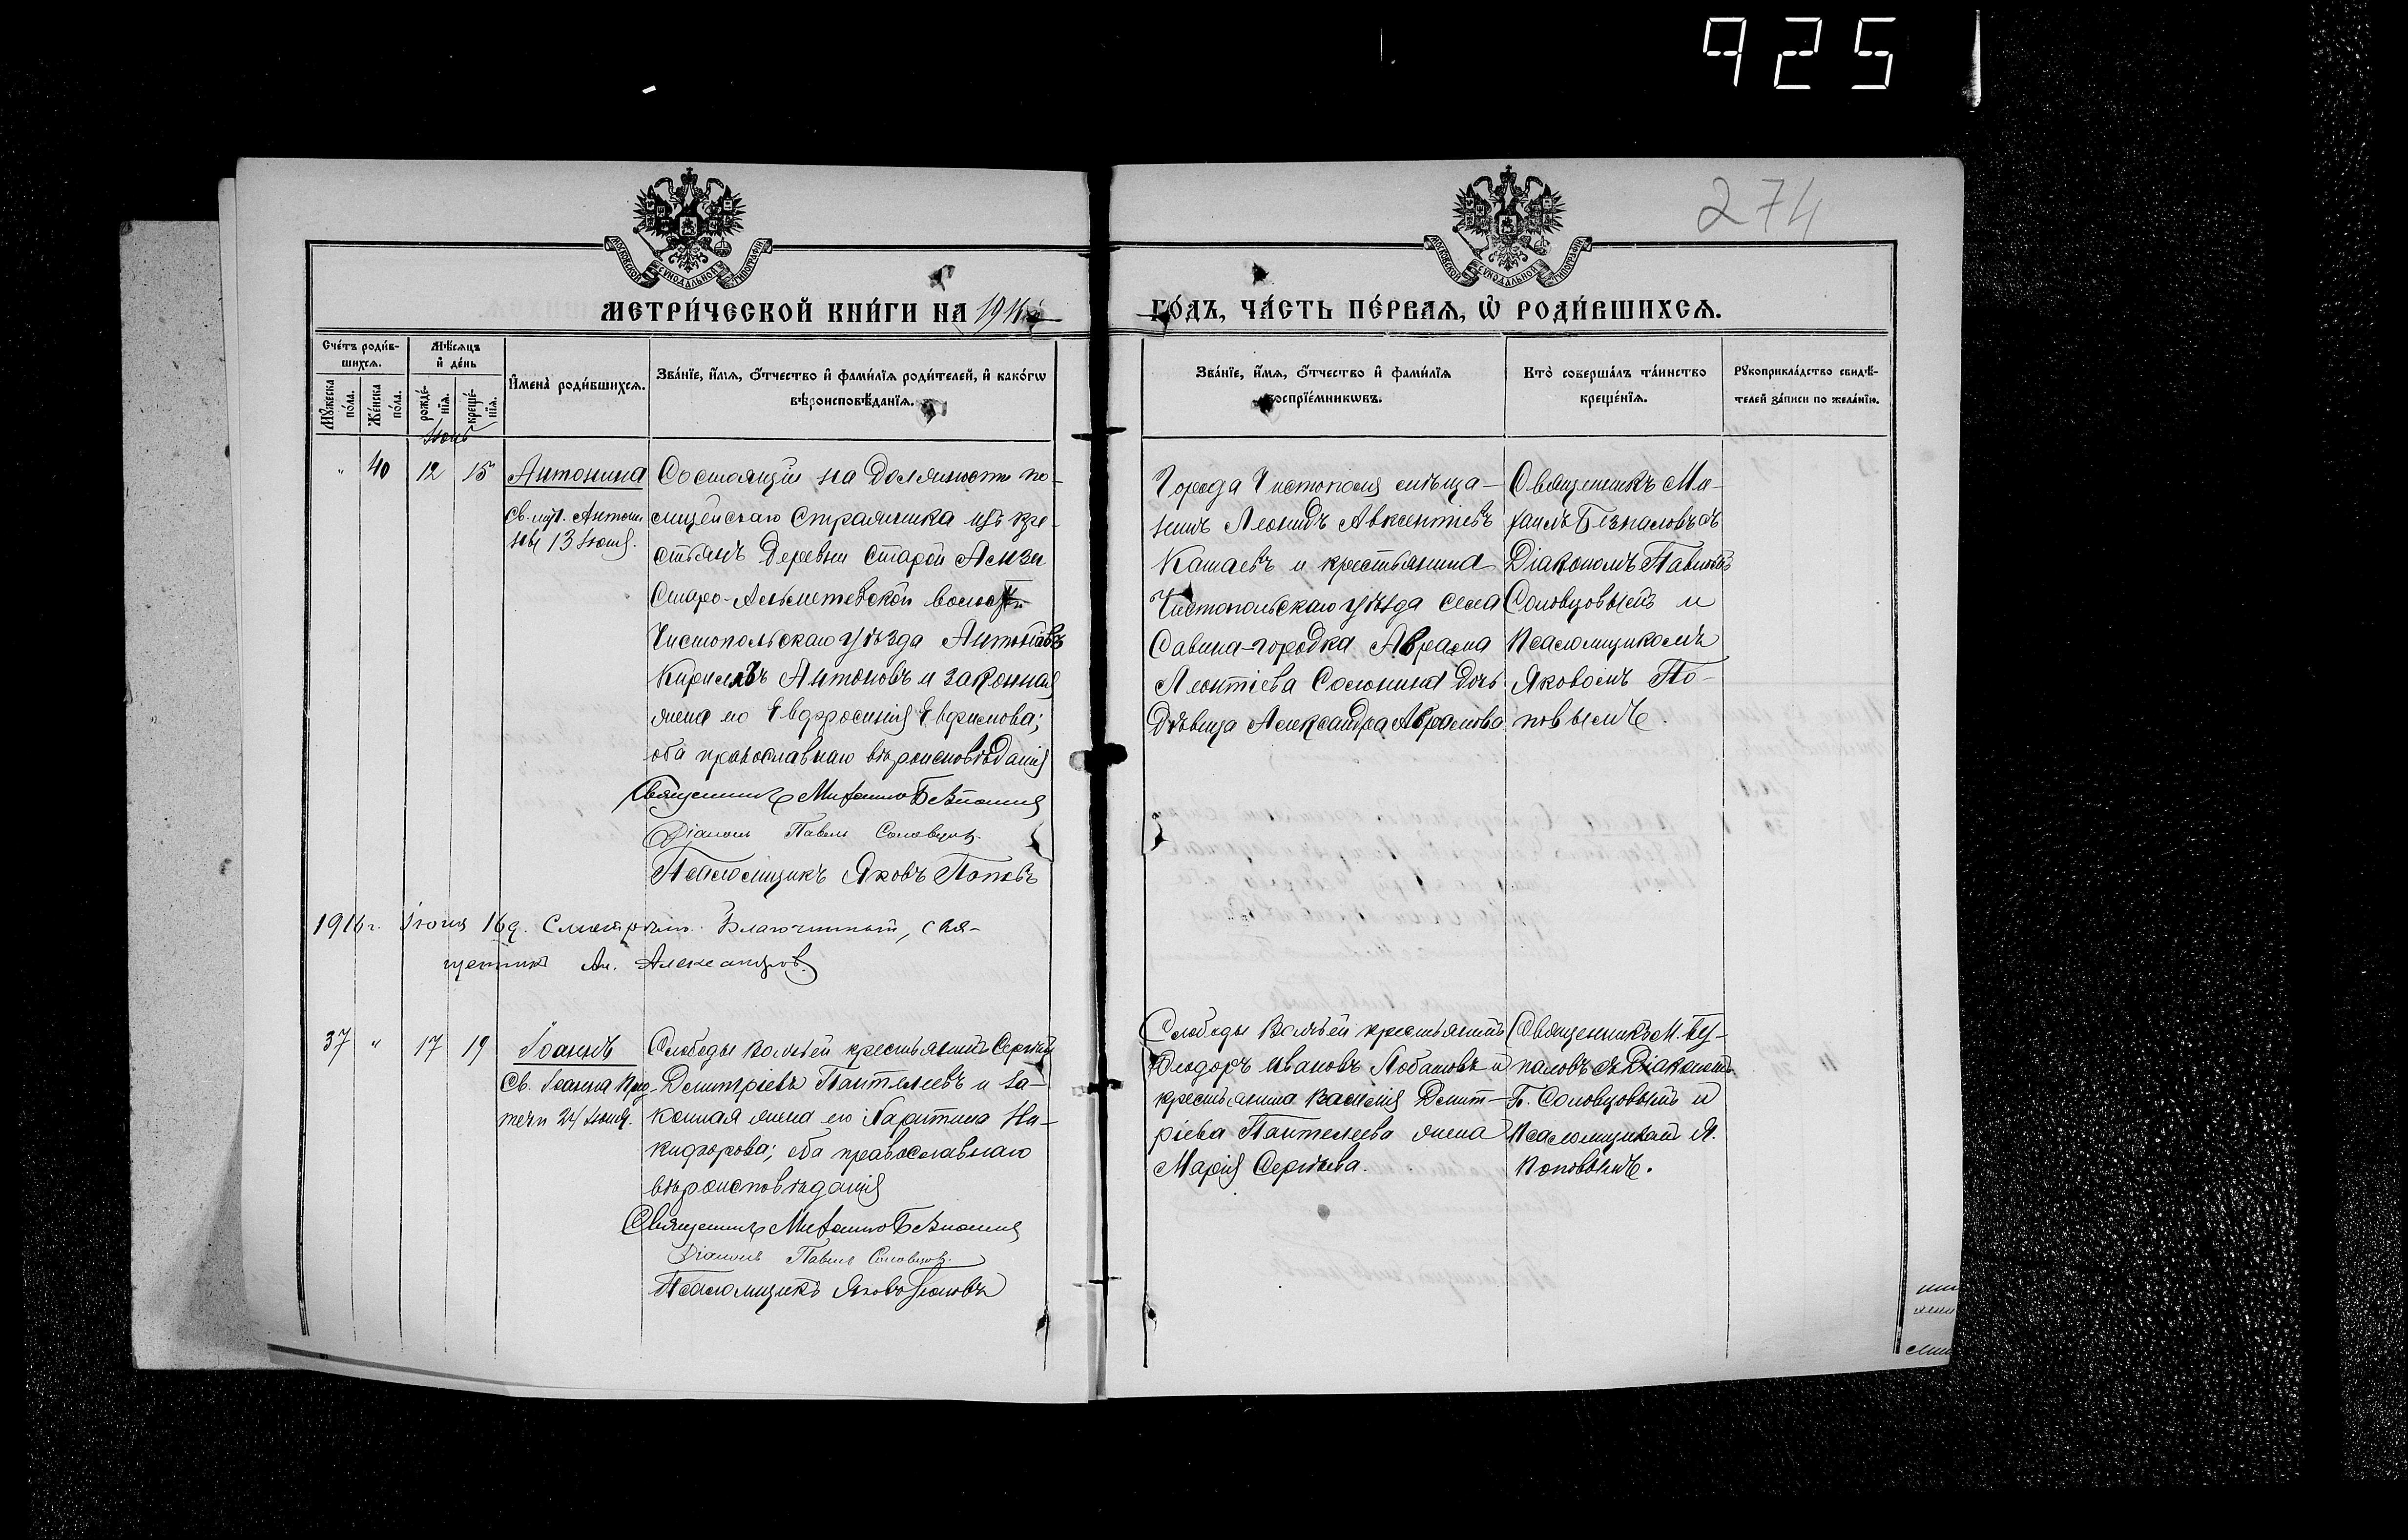 925
274
МЕТРИ́ЧЕСКОЙ КНИ́ГИ НА 1916й ГО́ДЪ, ЧА́СТЬ ПЕ́РВАЯ, Ѡ РОДИ́ВШИХСЯ.
Сче́тъ роди́в-
шихся.
Мꙋ́жеска по́ла.
Же́нска по́ла.
Мѣ́сяцъ
и҆ де́нь
рожде́-
нїѧ.
креще́-
нїѧ.
И҆мена̀ роди́вшихся.
Зва́нїе, и҆́мѧ, ѻ҆́тчество и҆ фами́лїѧ роди́телей, и҆ како́гѡ
вѣроисповѣ́данїѧ.
Зва́нїе, и҆́мѧ, ѻ҆́тчество и҆ фами́лїѧ
воспрїе́мникѡвъ.
Кто̀ соверша́лъ та́инство
креще́нїѧ.
Рꙋкоприкла́дство свидѣ́-
телей за́писи по жела́нїю.
Іюнь
" 40 12 15 Антонина
Св. муч. Антони
ны 13 Іюня.
Состоящій на должности по-
лицейскаго Стражника изъ кре-
стьянъ Деревни Старой Амзи
Старо-Альметевской волости
Чистопольскаго уѣзда
Кирилловъ Антоновъ и законная
жена его Евфросинія Евфимова;
оба православнаго вѣроисповѣданія
Священникъ Михаилъ
Діаконъ Павелъ Соловцовъ.
Псаломщикъ Яковъ Поповъ
Города Чистополя мѣща-
нинъ Леонидъ Авксентіевъ
Кашаевъ и крестьянина
Чистопольскаго уѣзда села
Савина-городка Аврама
Леонтіева Солонина дочь
Дѣвица Александра Аврамова.
Священникъ Ми-
хаилъ Безпаловъ съ
Діакономъ Павломъ
Соловцовымъ и
Псаломщикомъ
Яковомъ По-
повымъ.
1916 г. Іюня 16 д. Смотрѣлъ Благочинный, свя-
щенникъ Ал. Александров.
37 " 17 19 Іоаннъ
Св. Іоанна Пред
течи 24 Іюня.
Слободы Волчьей крестьянинъ Сергѣй
Димитріевъ Пантелеевъ и за-
конная жена его Харитина Ни-
кифорова; оба православнаго
вѣроисповѣданія
Священникъ Михаилъ
Діаконъ Павелъ Соловцовъ.
Псаломщикъ Яковъ Поповъ
Слободы Волчьей крестьянинъ
Ѳеодоръ Ивановъ Лобановъ и
крестьянина Василія Димит-
ріева Пантелеева жена
Марія Сергѣева.
Священникъ М. Без-
паловъ съ Діакономъ
П. Соловцовымъ и
Псаломщикомъ Я.
Поповымъ.